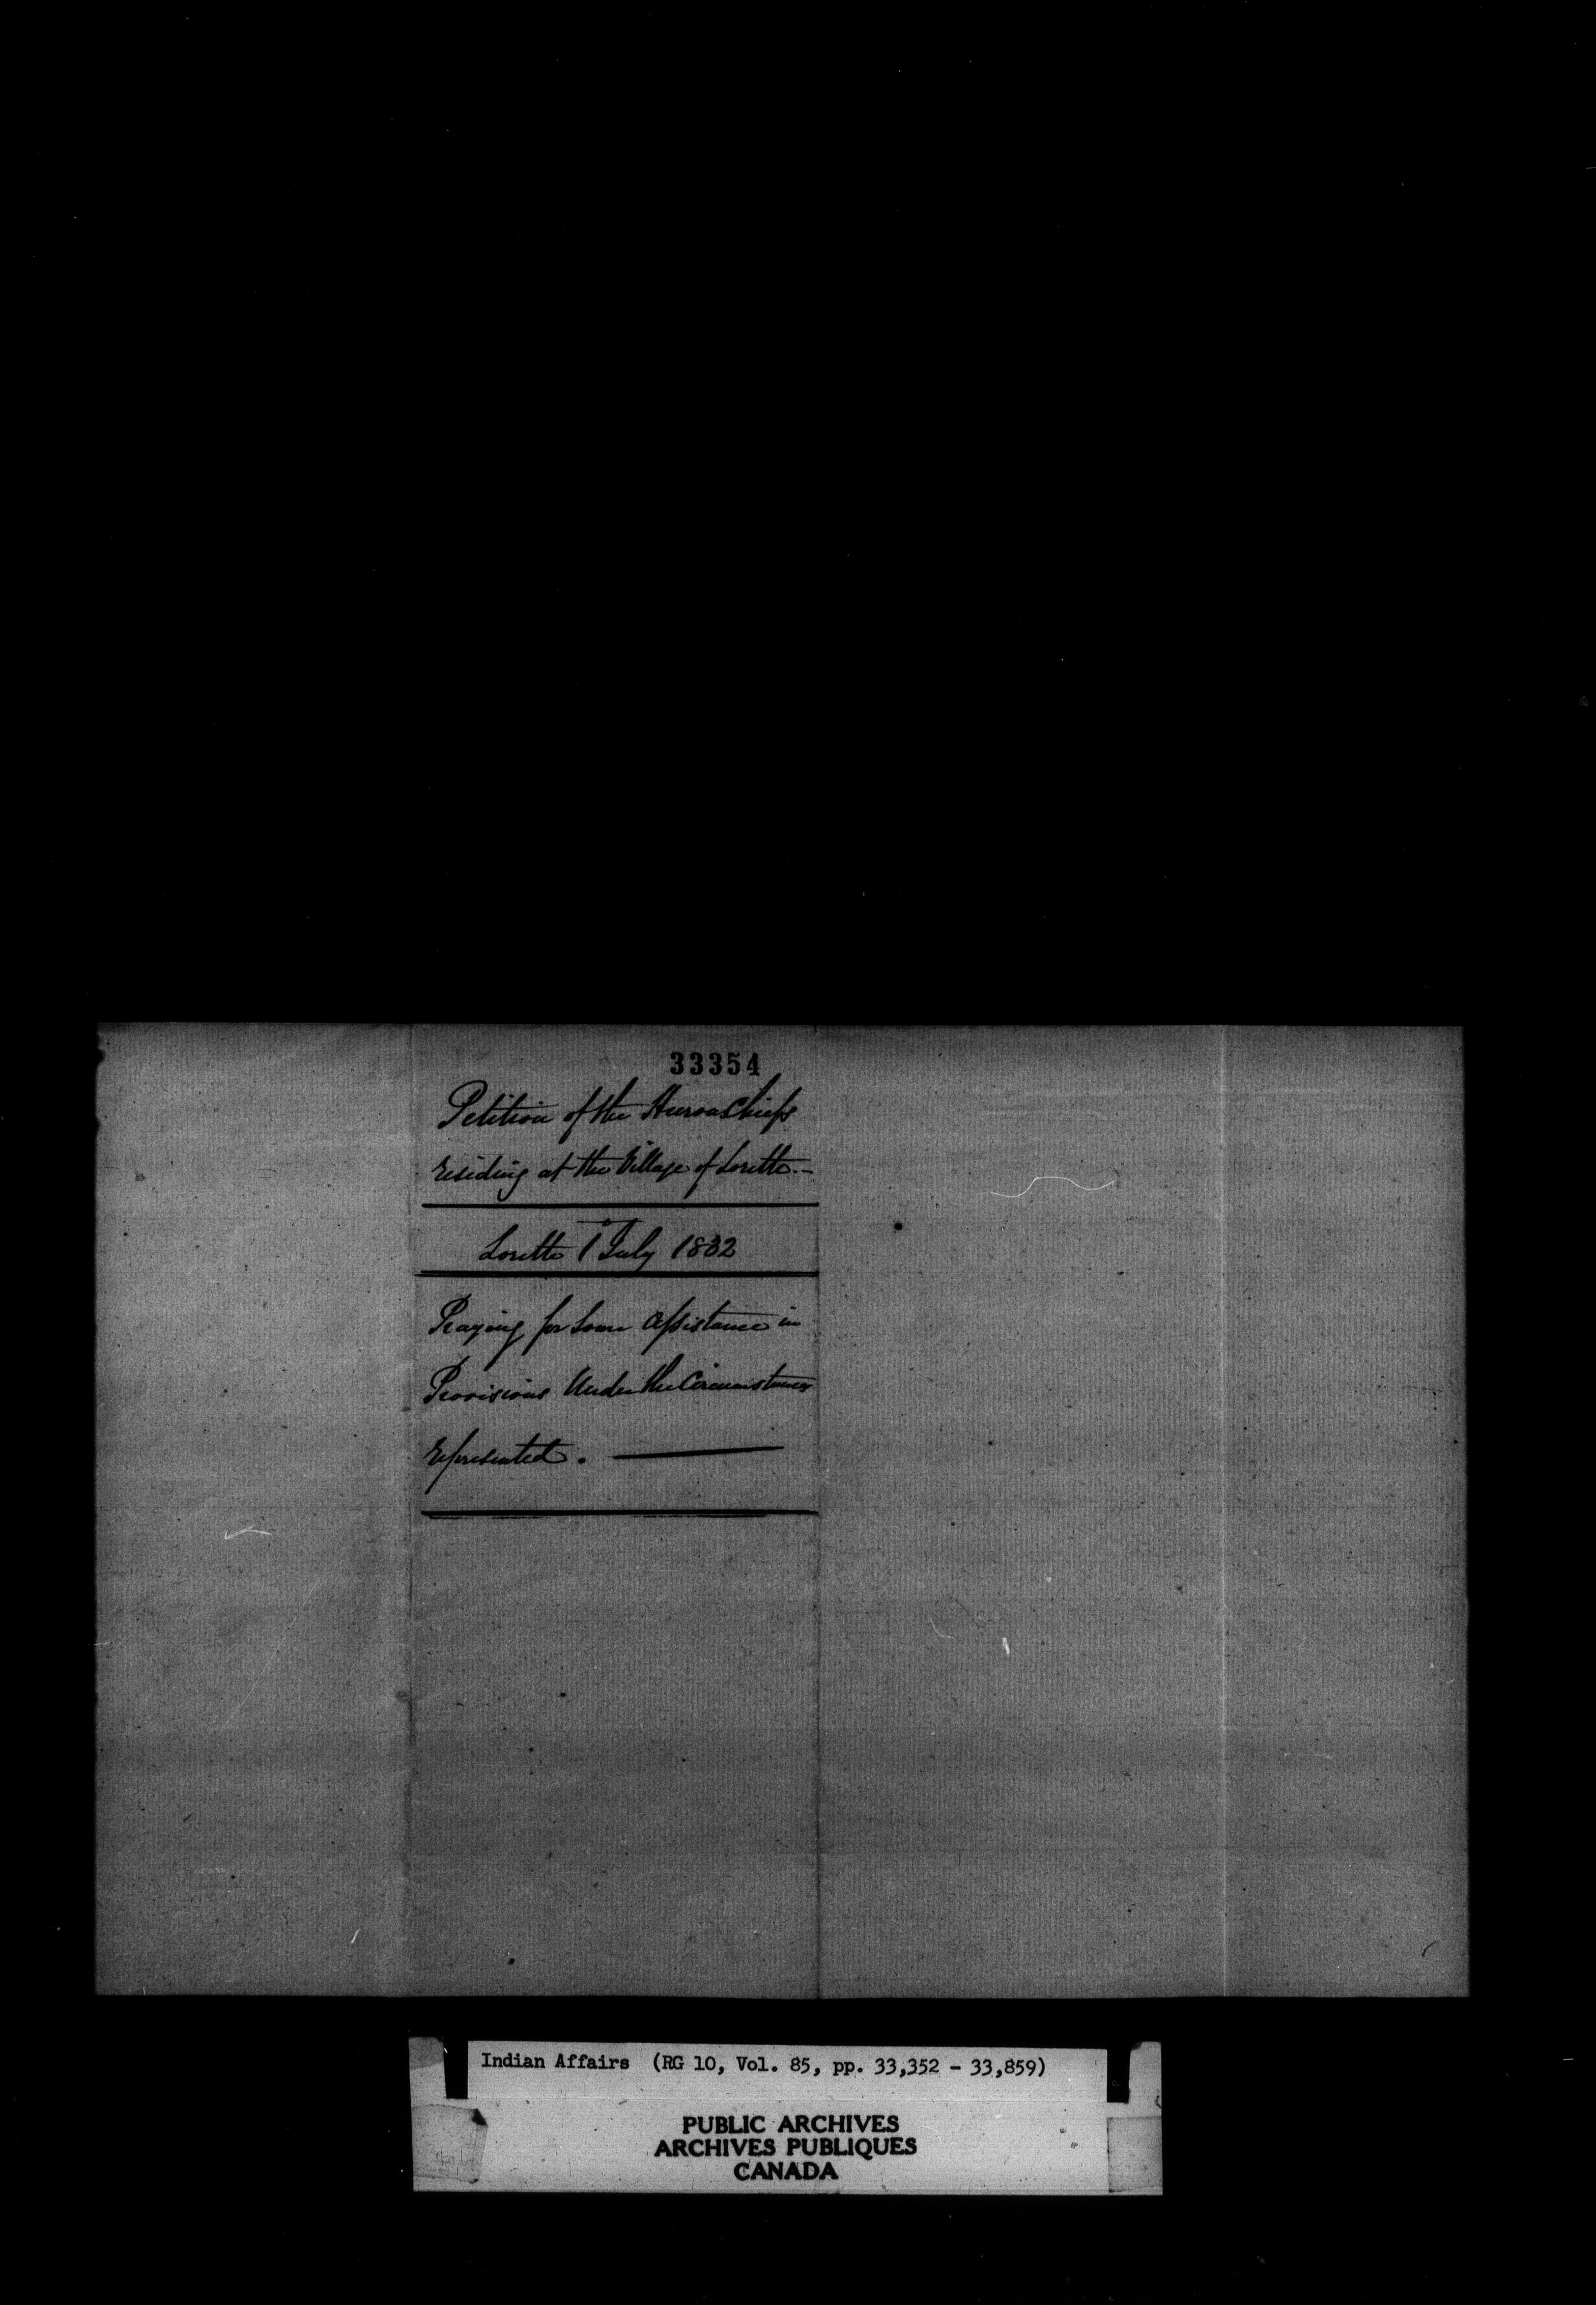 33354
Petition of the Huron Chiefs
residing at the Village of Lorette.—
Lorette 1st July 1832
Praying for Some Assistance in
Provisions Under the Circumstances
represented. —
Indian Affairs (RG 10, Vol. 85, pp. 33,352 - 33,859)
PUBLIC ARCHIVES
ARCHIVES PUBLIQUES
CANADA